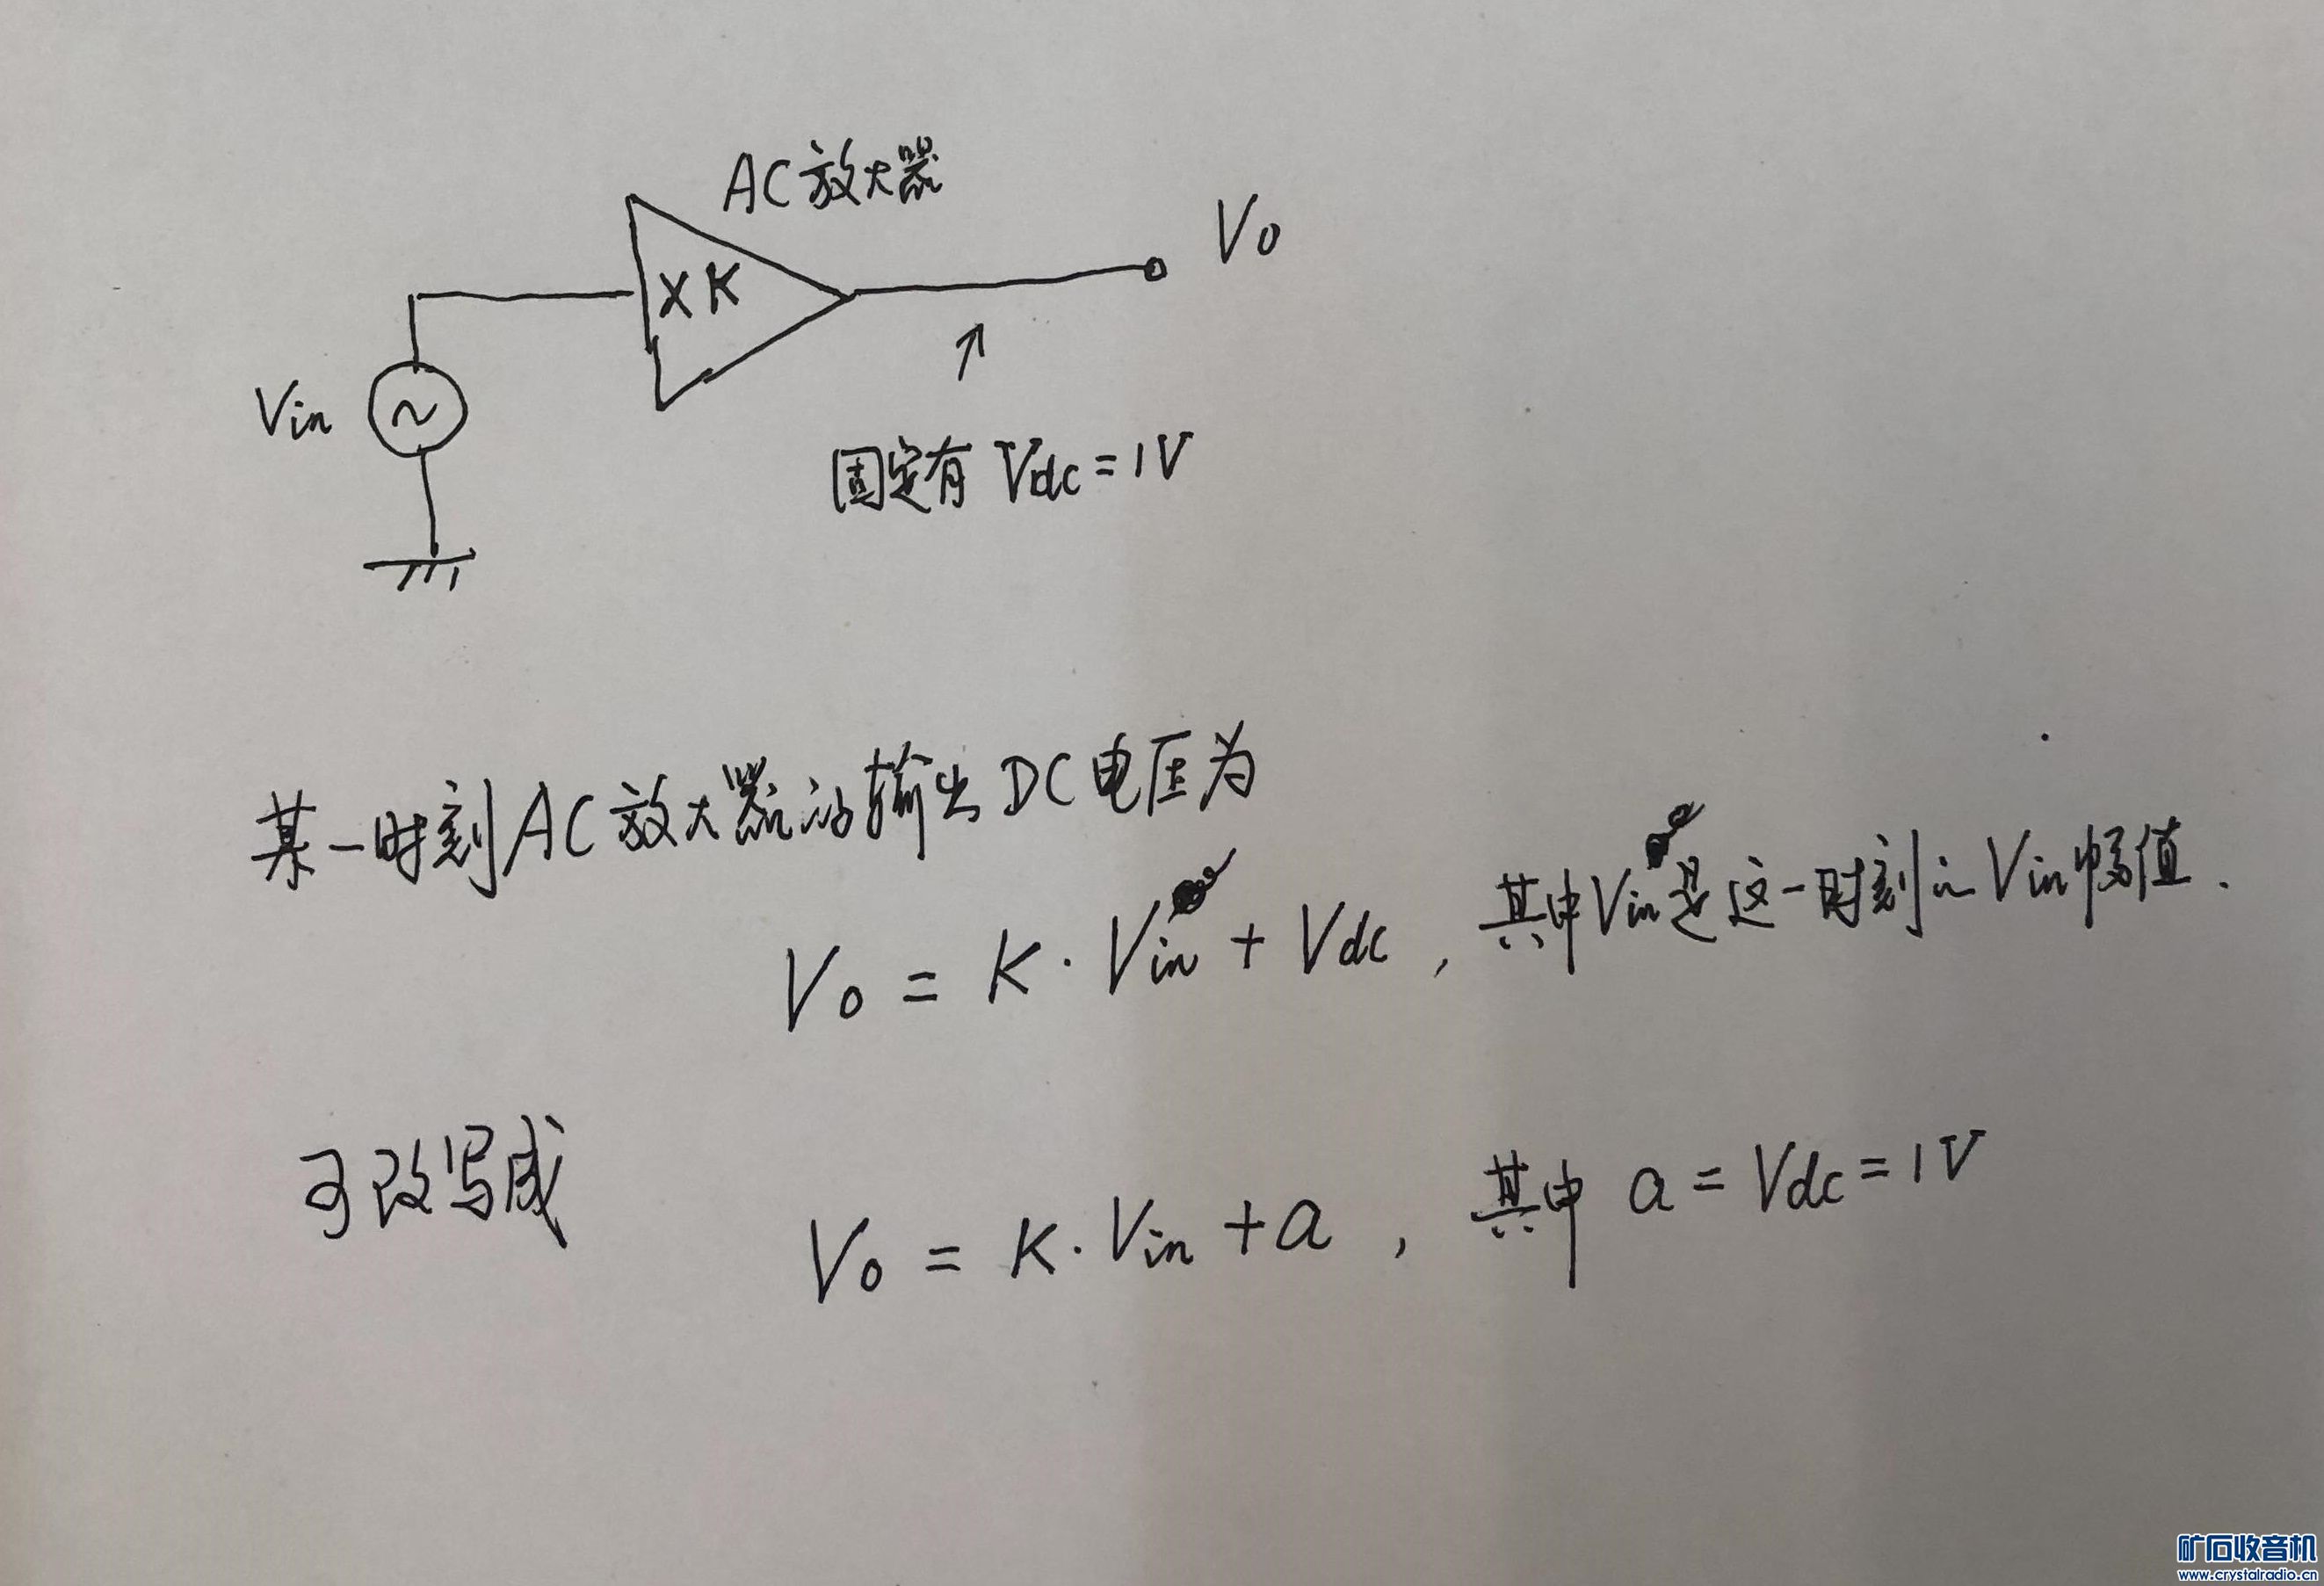 AC放大器
×K
Vo
Vin
固定有 Vdc=1V
某一时刻AC放大器的输出DC电压为
Vo = K·Vin + Vdc, 其中Vin是这一时刻的Vin幅值.
可改写成
Vo = K·Vin + a, 其中 a = Vdc = 1V
矿石收音机
www.crystalradio.cn